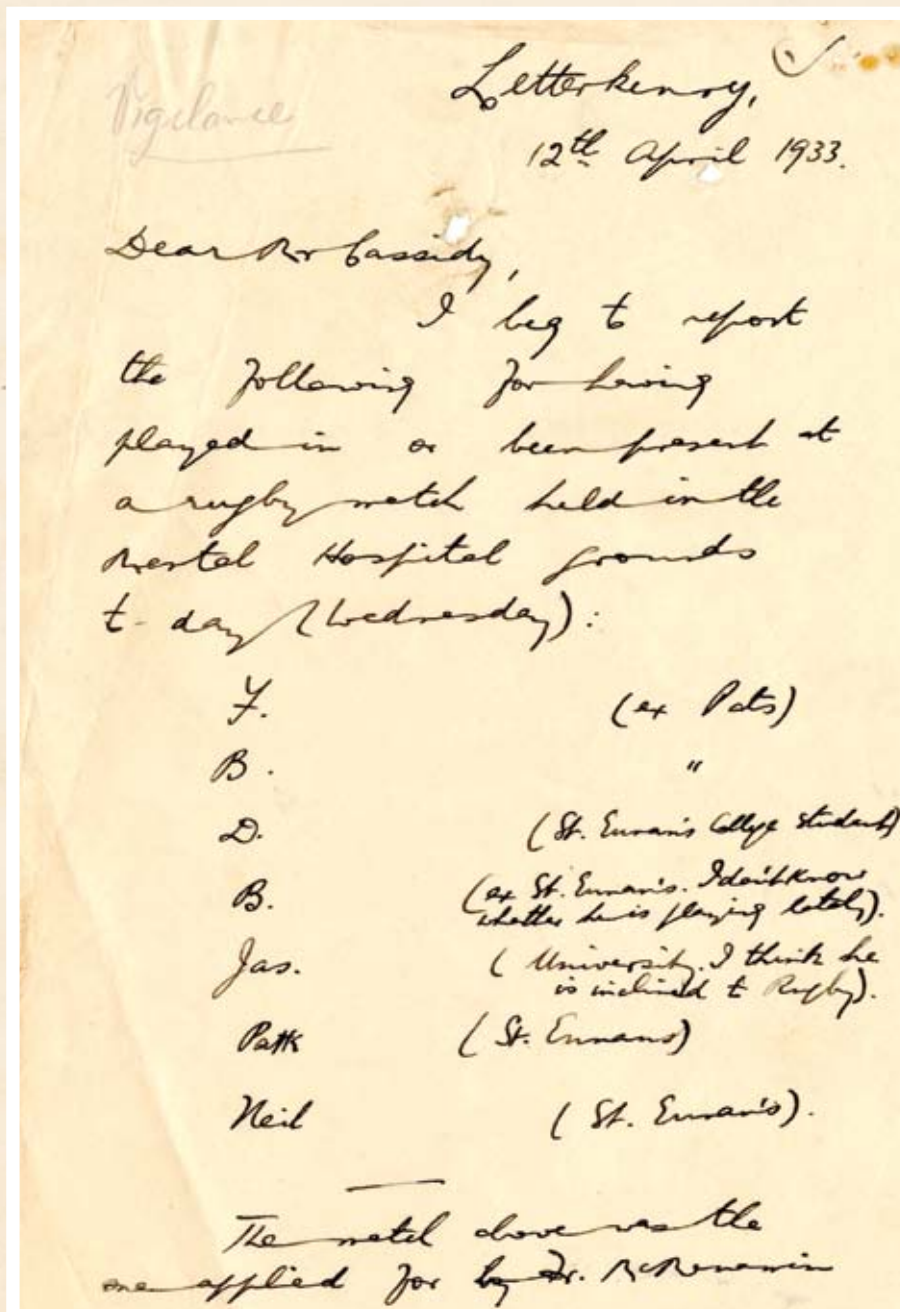 Vigilance
Letterkenny,
12th April 1933.
Dear Mr Cassidy,
I beg to report
the following for having
played in or been present at
a rugby match held in the
Mental Hospital grounds
to-day (Wednesday):
F. (ex Pats)
B. "
D. (St. Eunan's College student)
B. (ex St. Eunan's. I don't know
whether he is playing lately).
Jas. (University. I think he
is inclined to Rugby).
Patk (St. Eunans)
Neil (St. Eunan's).
The match above was the
one applied for by Dr. McMenamin